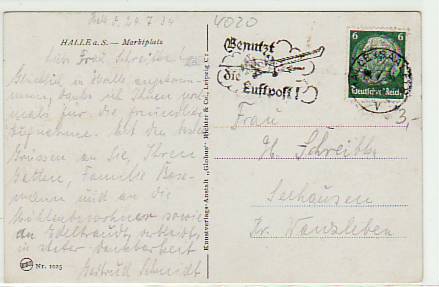 Halle, d. 29.7.34
4020
HALLE a. S. — Marktplatz
Liebe Frau Schreiber!
Glücklich in Halle angekom-
men, danke ich Ihnen noch-
mals für die freundliche
Aufnahme. Mit den besten
Grüssen an Sie, Ihren
Gatten, Familie
und an die
Mühlenbewohner sowie
an Edeltraud, verbleibt
in steter Dankbarkeit
Gertrud Schmidt
Nr. 1025
Kunstverlags-Anstalt „Globus" Richter & Co., Leipzig C 1
Benutzt
die
Luftpost!
6 6
Deutsches Reich
3,-
Frau
Schreiber
Seehausen
Kr. Wanzleben